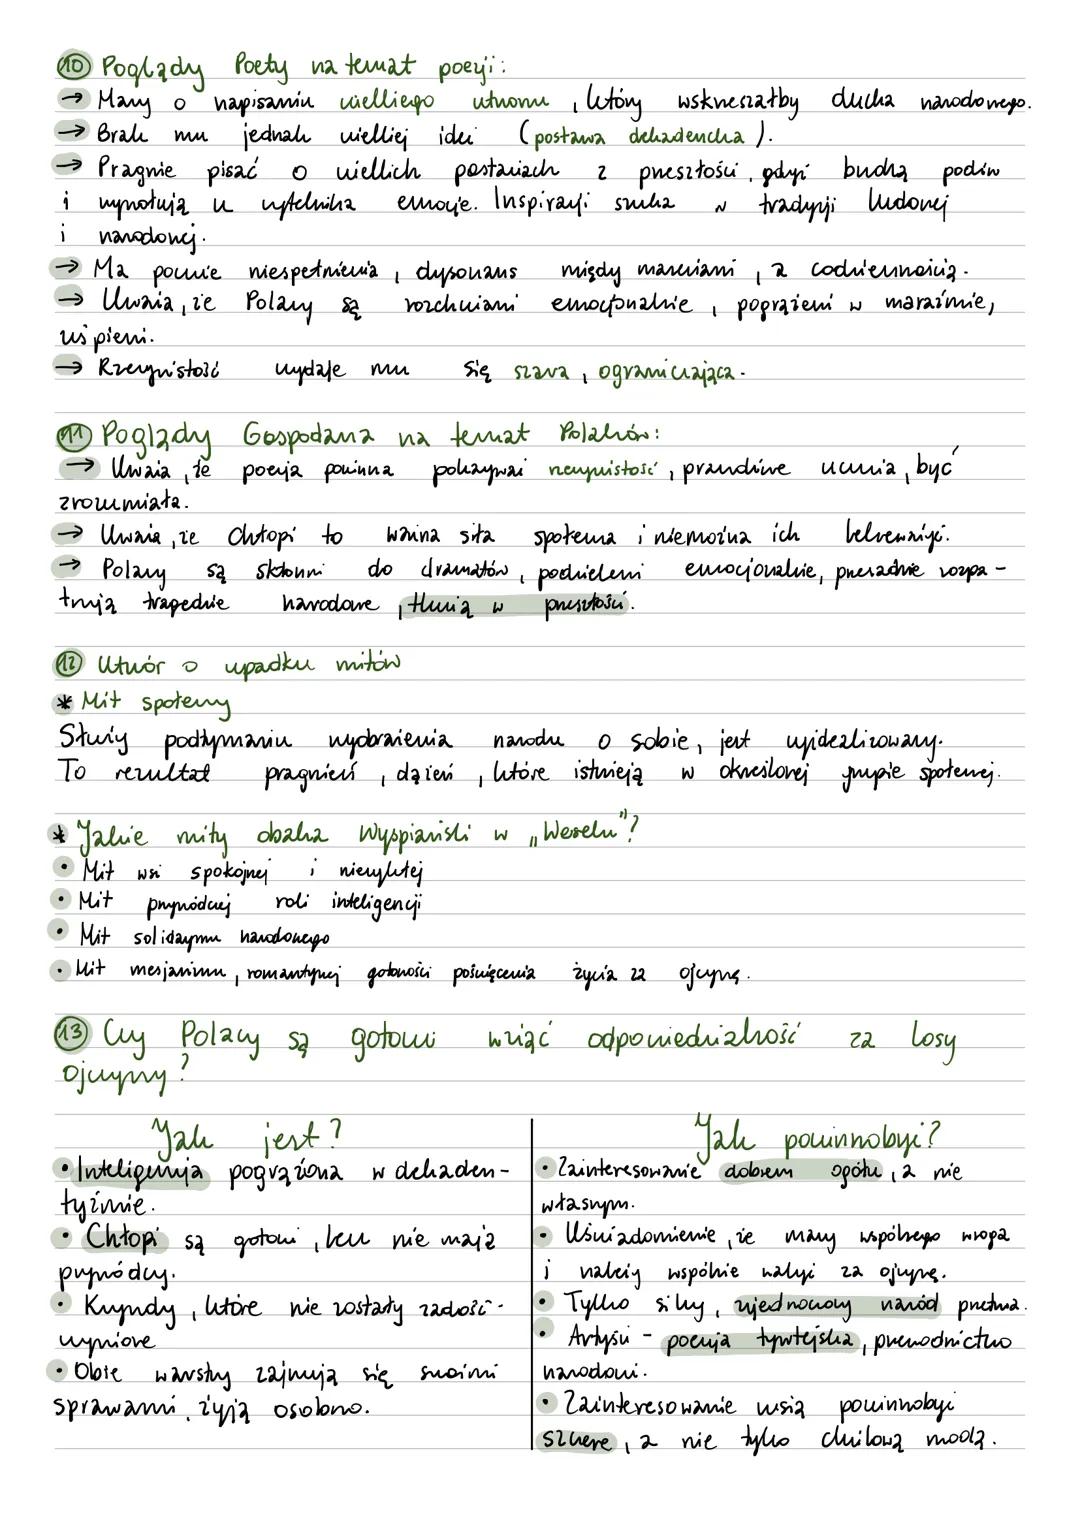 10 Poglądy Poety na temat poezji:
→ Marzy o napisaniu wielkiego utworu, który wskrzeszałby ducha narodowego.
→ Brak mu jednak wielkiej idei (postawa dekadencka).
→ Pragnie pisać o wielkich postaciach z przeszłości, gdyż budzą podziw
i wywołują u czytelnika emocje. Inspiracji szuka w tradycji ludowej
i narodowej.
→ Ma poczucie niespełnienia, dysonans między marzeniami, a codziennością.
→ Uważa, że Polacy są rozchwiani emocjonalnie, pogrążeni w marazmie,
uśpieni.
→ Rzeczywistość wydaje mu się szara, ograniczająca.
11 Poglądy Gospodarza na temat Polaków:
→ Uważa, że poezja powinna pokazywać rzeczywistość, prawdziwe uczucia, być
zrozumiała.
→ Uważa, że Chłopi to ważna siła społeczna i nie można ich lekceważyć.
→ Polacy są skłonni do dramatów, podzieleni emocjonalnie, przesadnie rozpa-
trują tragedie narodowe, tkwią w przeszłości.
12 Utwór o upadku mitów
* Mit społeczny
Służy podtrzymaniu wyobrażenia narodu o sobie, jest wyidealizowany.
To rezultat pragnień, dążeń, które istnieją w określonej grupie społecznej.
* Jakie mity obala Wyspiański w „Weselu"?
• Mit wsi spokojnej i niezwykłej
• Mit przywódczej roli inteligencji
• Mit solidaryzmu narodowego
• Mit mesjanizmu, romantycznej gotowości poświęcenia życia za ojczyznę.
13 Czy Polacy są gotowi wziąć odpowiedzialność za losy
ojczyzny?
Jak jest?
• Inteligencja pogrążona w dekaden-
tyźmie.
• Chłopi są gotowi, lecz nie mają
przywódcy.
• Krzywdy, które nie zostały zadość-
uczynione
• Obie warstwy zajmują się swoimi
sprawami, żyją osobno.
Jak powinno być?
• Zainteresowanie dobrem ogółu, a nie
własnym.
• Uświadomienie, że mamy wspólnego wroga
i należy wspólnie walczyć za ojczyznę.
• Tylko silny, zjednoczony naród przetrwa.
• Artyści - poezja tyrtejska, przewodnictwo
narodowi.
• Zainteresowanie wsią powinno być
szczere, a nie tylko chwilową modą.